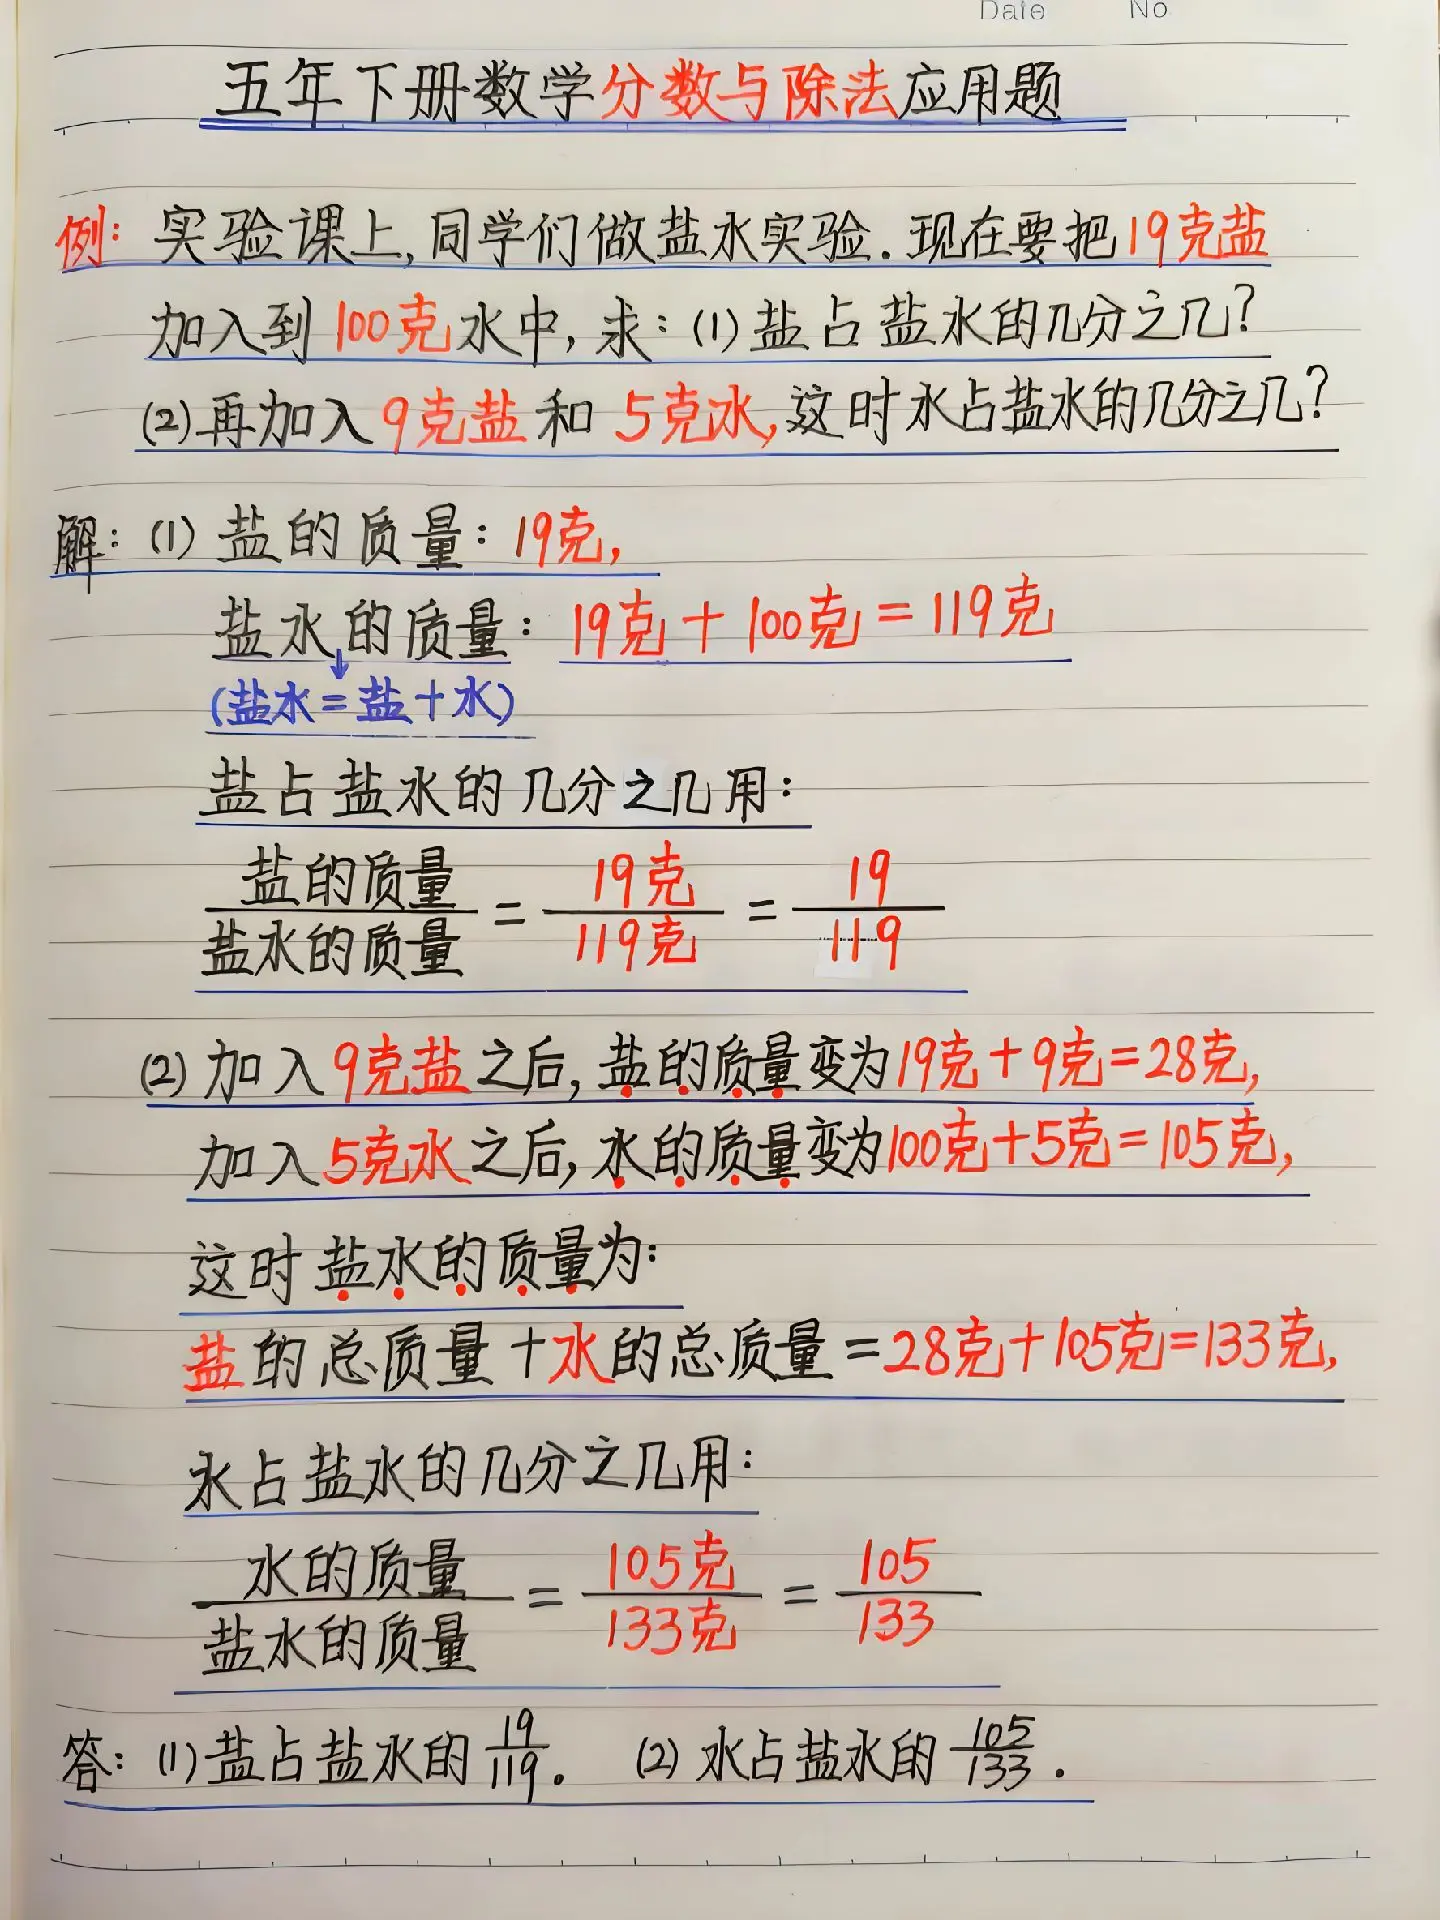 Date No
五年下册数学分数与除法应用题
例: 实验课上,同学们做盐水实验.现在要把19克盐
加入到100克水中,求:(1)盐占盐水的几分之几?
(2)再加入9克盐和5克水,这时水占盐水的几分之几?
解:(1)盐的质量:19克,
盐水的质量:19克+100克=119克
↓
(盐水=盐+水)
盐占盐水的几分之几用:
盐的质量/盐水的质量=19克/119克=19/119
(2)加入9克盐之后,盐的质量变为19克+9克=28克,
加入5克水之后,水的质量变为100克+5克=105克,
这时盐水的质量为:
盐的总质量+水的总质量=28克+105克=133克,
水占盐水的几分之几用:
水的质量/盐水的质量=105克/133克=105/133
答:(1)盐占盐水的19/119。 (2)水占盐水的105/133.